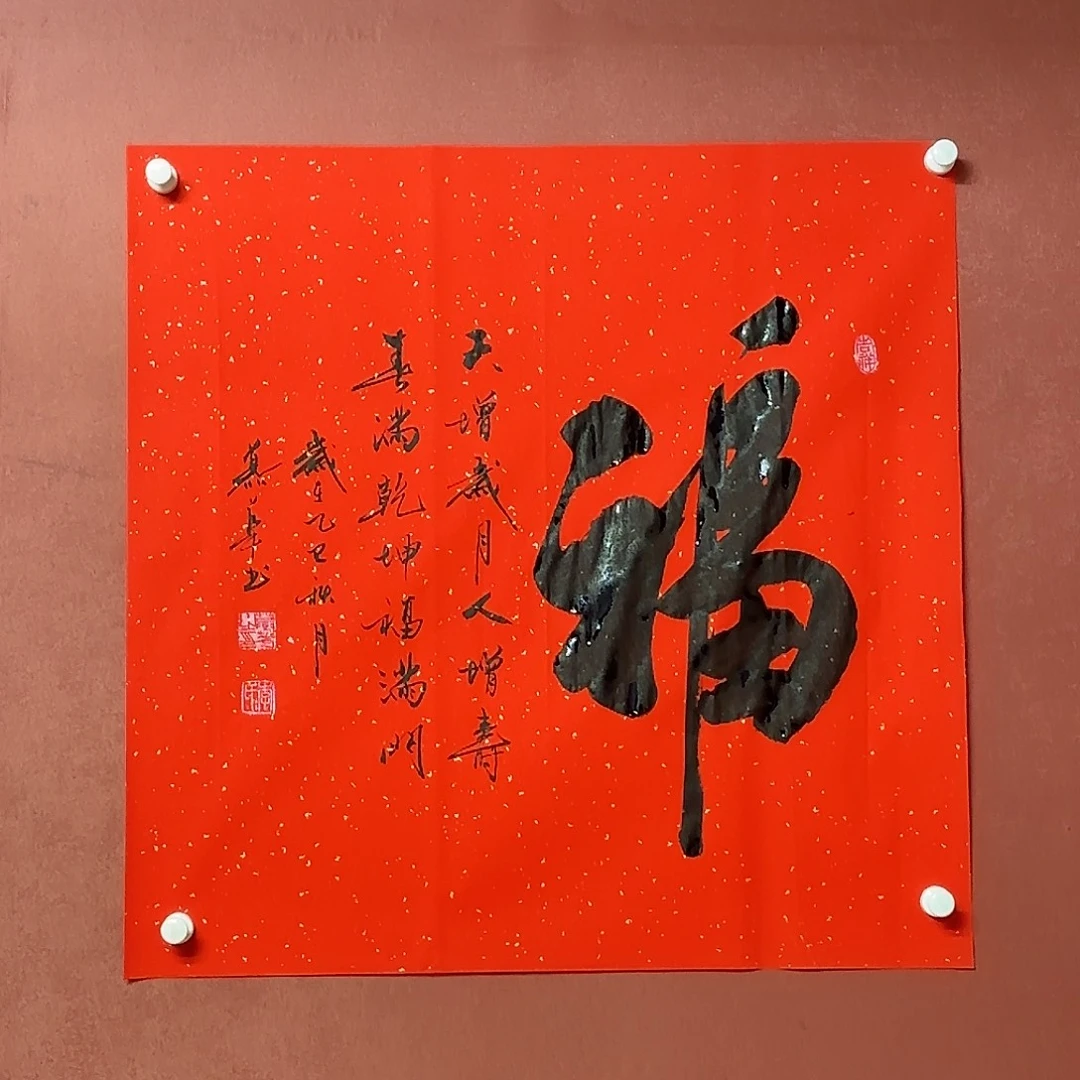 福
吉祥
天增歲月人增壽
春滿乾坤福滿門
歲在乙巳秋月
書